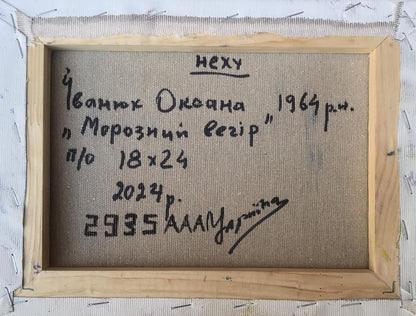 НЕХУ
Іванюк Оксана 1964 р.н.
„Морозний вечір"
п/о 18x24
2024р.
2935 АААУкраїна